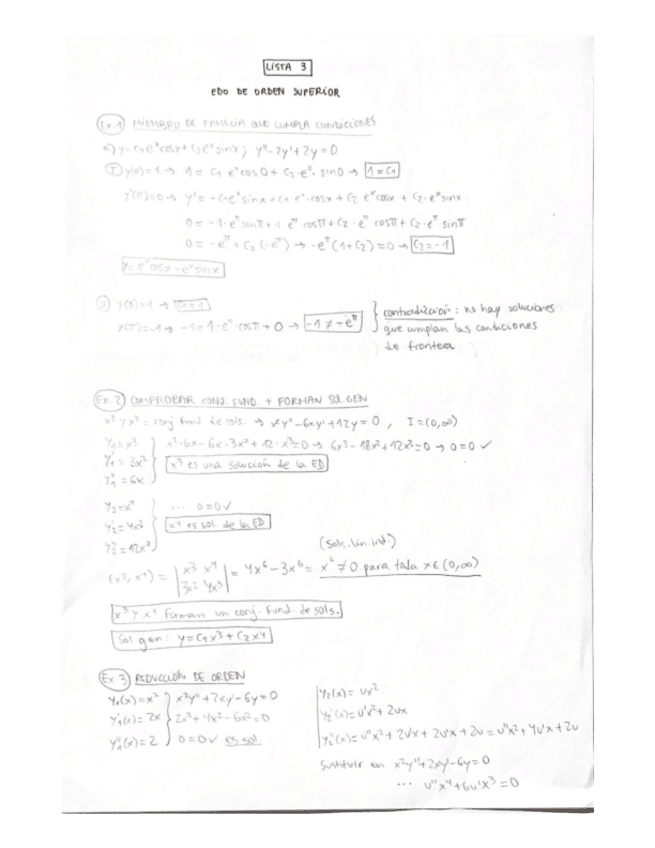 LISTA 3
EDO DE ORDEN SUPERIOR
Ex.1 MIEMBRO DE FAMILIA QUE CUMPLA CONDICIONES
a) y=c₁eˣcosx+c₂eˣsinx ; y''-2y'+2y=0
I y(0)=1 → 1 = c₁ e⁰cos0 + c₂·e⁰·sin0 → 1=c₁
y'(π)=0 → y'= -c₁eˣsinx + c₁ eˣ·cosx + c₂ eˣcosx + c₂·eˣsinx
0 = -1·e^π sinπ + 1 e^π cosπ + c₂·e^π cosπ + c₂·e^π sinπ
0 = -e^π + c₂(-e^π) → -e^π(1+c₂)=0 → c₂=-1
y=eˣcosx-eˣsinx
II) y(0)=1 → c₁=1
y(π)=-1 → -1=1·e^π·cosπ+0 → -1≠-e^π
contradicción: no hay soluciones
que cumplan las condiciones
de frontera
Ex.2 COMPROBAR CONJ. FUND. + FORMAN SOL GEN
x³ y x⁴ = conj fund de sols. → x²y''-6xy'+12y=0 , I=(0,∞)
y₁=x³
y₁'=3x²
y₁''=6x
x²·6x-6x·3x²+12·x³=0 → 6x³-18x³+12x³=0 → 0=0 ✓
x³ es una solución de la ED
y₂=x⁴
y₂'=4x³
y₂''=12x²
... 0=0 ✓
x⁴ es sol. de la ED
(sols. lin ind.)
(x³,x⁴) = |x³ x⁴ 3x² 4x³| = 4x⁶-3x⁶ = x⁶≠0 para toda x∈(0,∞)
x³ y x⁴ forman un conj. fund. de sols.
Sol gen: y=c₁x³+c₂x⁴
Ex 3 REDUCCIÓN DE ORDEN
y₁(x)=x²
y₁'(x)=2x
y₁''(x)=2
x²y''+2xy'-6y=0
2x²+4x²-6x²=0
0=0 ✓ es sol
y₂(x)=ux²
y₂'(x)=u'x²+2ux
y₂''(x)=u''x²+2u'x+2u'x+2u=u''x²+4u'x+2u
Sustituir en x²y''+2xy'-6y=0
... u''x⁴+6u'x³=0